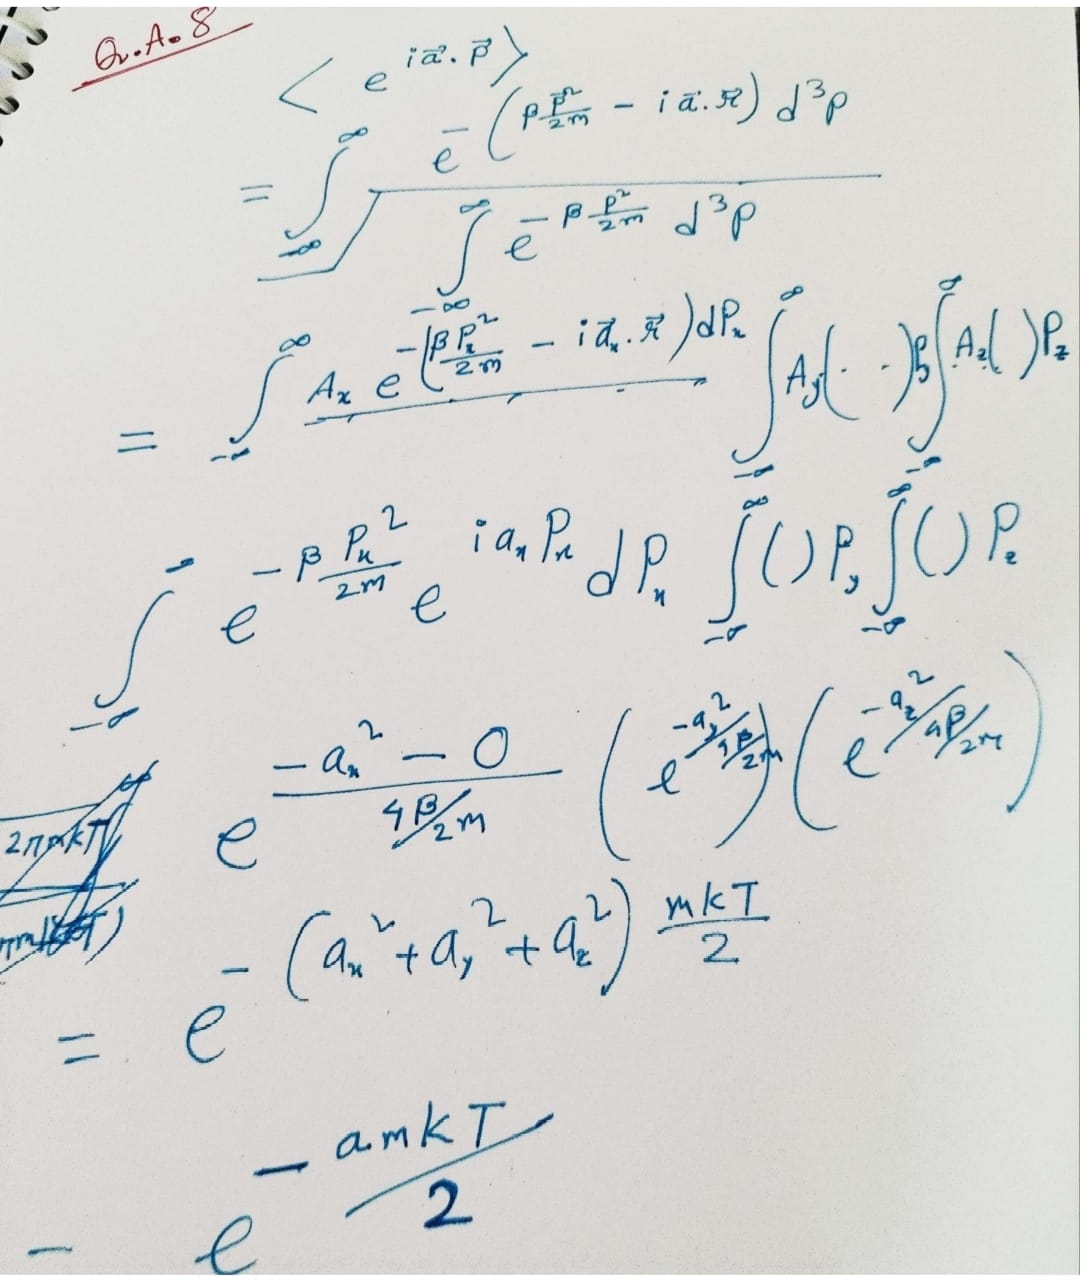 Q.A.8
< e^{i\vec{a}.\vec{p}} >
= \int_{-∞}^{∞} e^{-(β\frac{\vec{p}^2}{2m} - i\vec{a}.\vec{r})} d^3p
\int_{-∞}^{∞} e^{-β\frac{p^2}{2m}} d^3p
= \int_{-∞}^{∞} A_x e^{-(β\frac{P_x^2}{2m} - i\vec{a}_x.\vec{r})} dP_x \int_{-∞}^{∞} A_y(. . .)P_y \int_{-∞}^{∞} A_z( )P_z
\int_{-∞}^{∞} e^{-β\frac{P_x^2}{2m}} e^{i a_x P_x} dP_x \int_{-∞}^{∞} ( ) P_y \int_{-∞}^{∞} ( ) P_z
e^{\frac{-a_x^2 - 0}{4β/2m}} (e^{-a_y^2/4β/2m}) (e^{-a_z^2/4β/2m})
= e^{-(a_x^2 + a_y^2 + a_z^2)\frac{mkT}{2}}
- e^{-amkT/2}